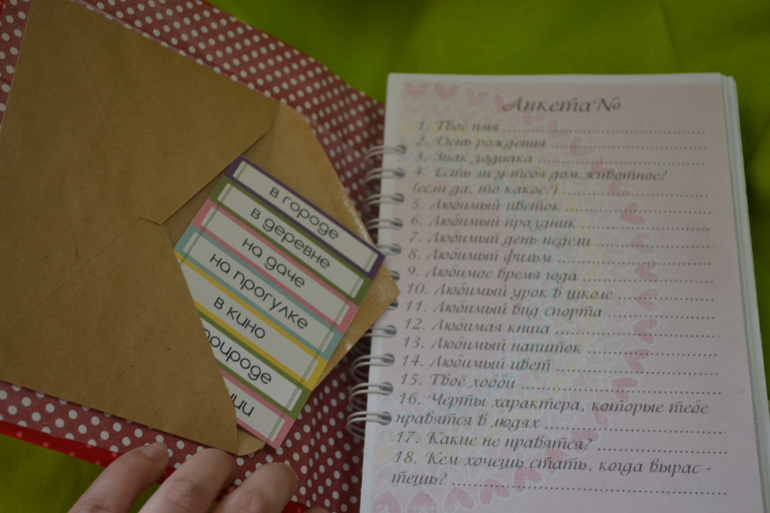 в городе
в деревне
на даче
на прогулке
в кино
Анкета №
1. Твоё имя
2. День рождения
3. Знак зодиака
4. Есть ли у тебя дом. животное?
(если да, то какое?)
5. Любимый цветок
6. Любимый праздник
7. Любимый день недели
8. Любимый фильм
9. Любимое время года
10. Любимый урок в школе
11. Любимый вид спорта
12. Любимая книга
13. Любимый напиток
14. Любимый цвет
15. Твоё хобби
16. Черты характера, которые тебе
нравятся в людях
17. Какие не нравятся?
18. Кем хочешь стать, когда вырас -
тешь?